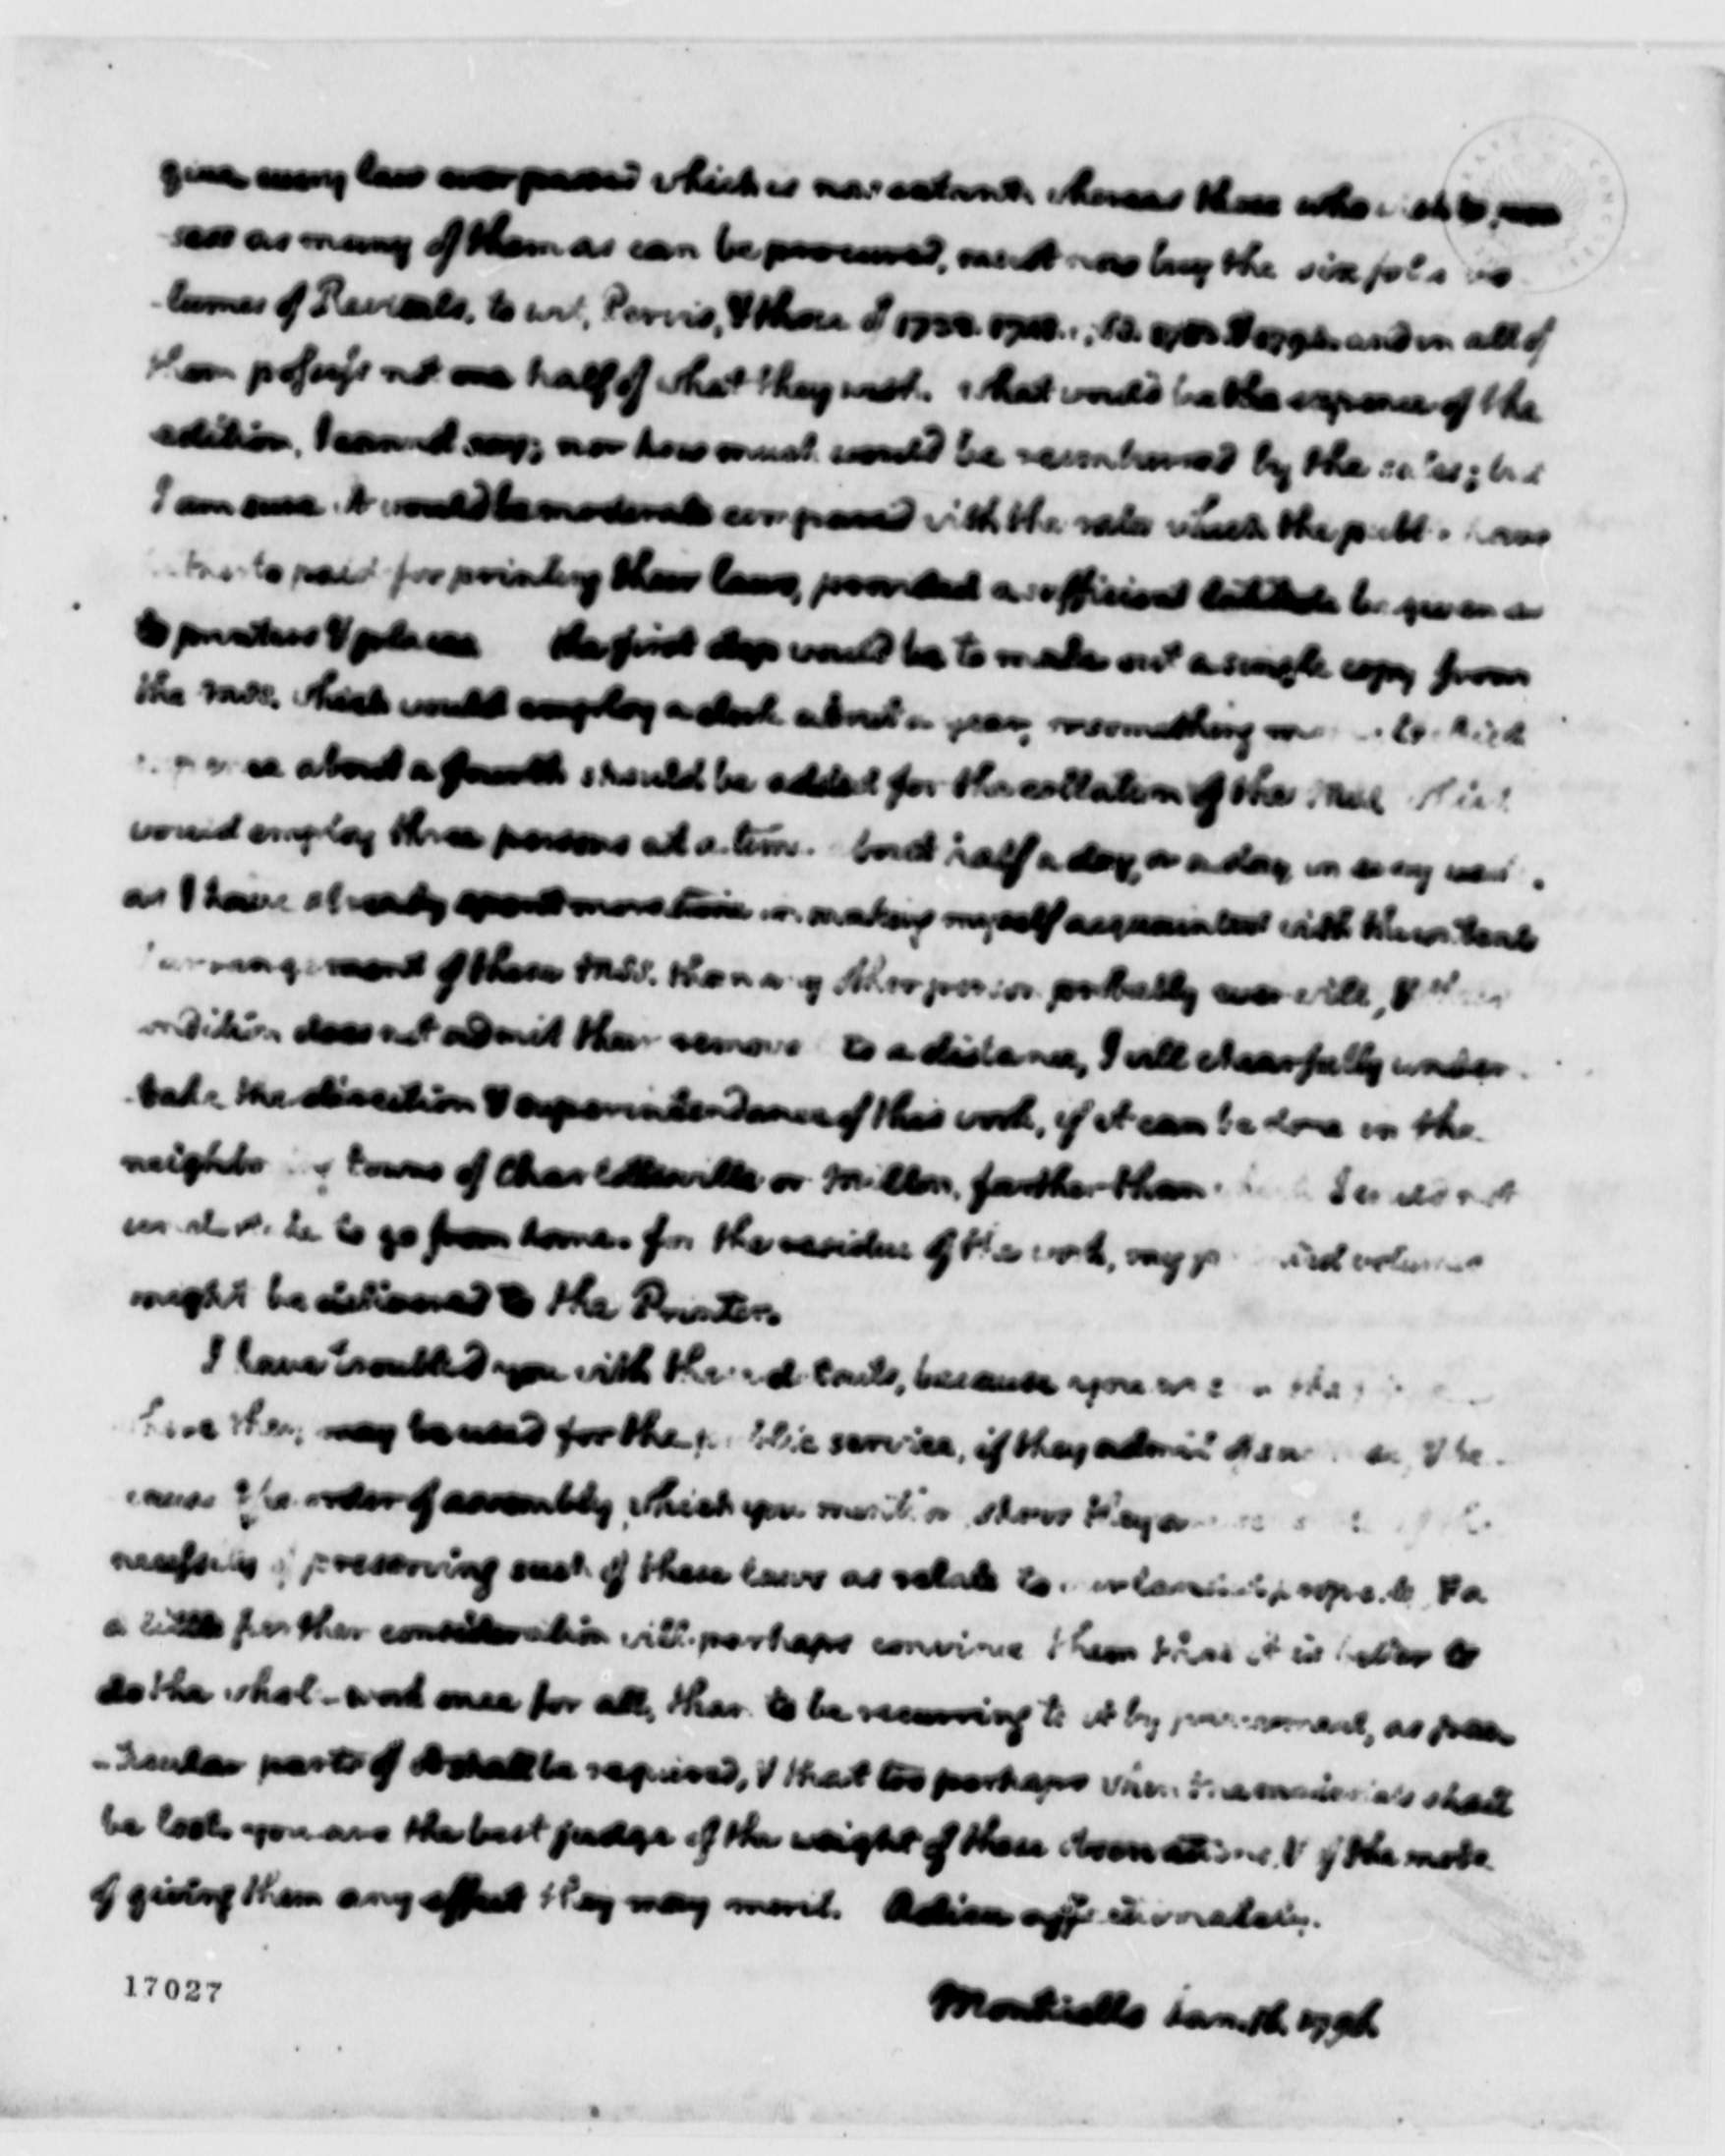 every law ever passed which is now extant. whereas those who wish to pos-
-sess as many of them as can be procured, must now buy the six folio vo-
-lumes of Revisals, to wit, Purvis, & those of 1732. 1748. and in all of
them possess not one half of what they wish. what would be the expence of the
edition, I cannot say; nor how much would be reimbursed by the sales; but
I am sure it would be moderate compared with the rates which the public have
hitherto paid for printing their laws, provided a sufficient latitude be given as
to printers & places. the first step would be to make out a single copy from
the MSS. which would employ a clerk about a year, or something more to which
expence about a fourth should be added for the collation of the MSS. which
would employ three persons at a time about half a day, or a day, in every week.
as I have already spent more time in making myself acquainted with the contents
& arrangement of these MSS. than any other person probably ever will, & their
condition does not admit their removal to a distance, I will chearfully under-
-take the direction & superintendance of this work, if it can be done in the
neighboring towns of Charlottesville or Milton, farther than which I could not
undertake to go from home. for the residue of the work, my printed volumes
might be delivered to the Printer.
I have troubled you with these details, because you are in the
have they may be used for the public service, if they admit of such use, & be-
-cause the order of assembly, which you mention, shews they are sensible of the
necessity of preserving such of these laws as relate to landed property. & a
a little further consideration will perhaps convince them that it is better to
do the whole work once for all, than to be recurring to it by piecemeal, as par-
-ticular parts of it shall be required, & that too perhaps when the materials shall
be lost. you are the best judge of the weight of these observations, & of the mode
of giving them any effect they may merit. Adieu affectionately.
17027
Monticello Jan. 16. 1796.